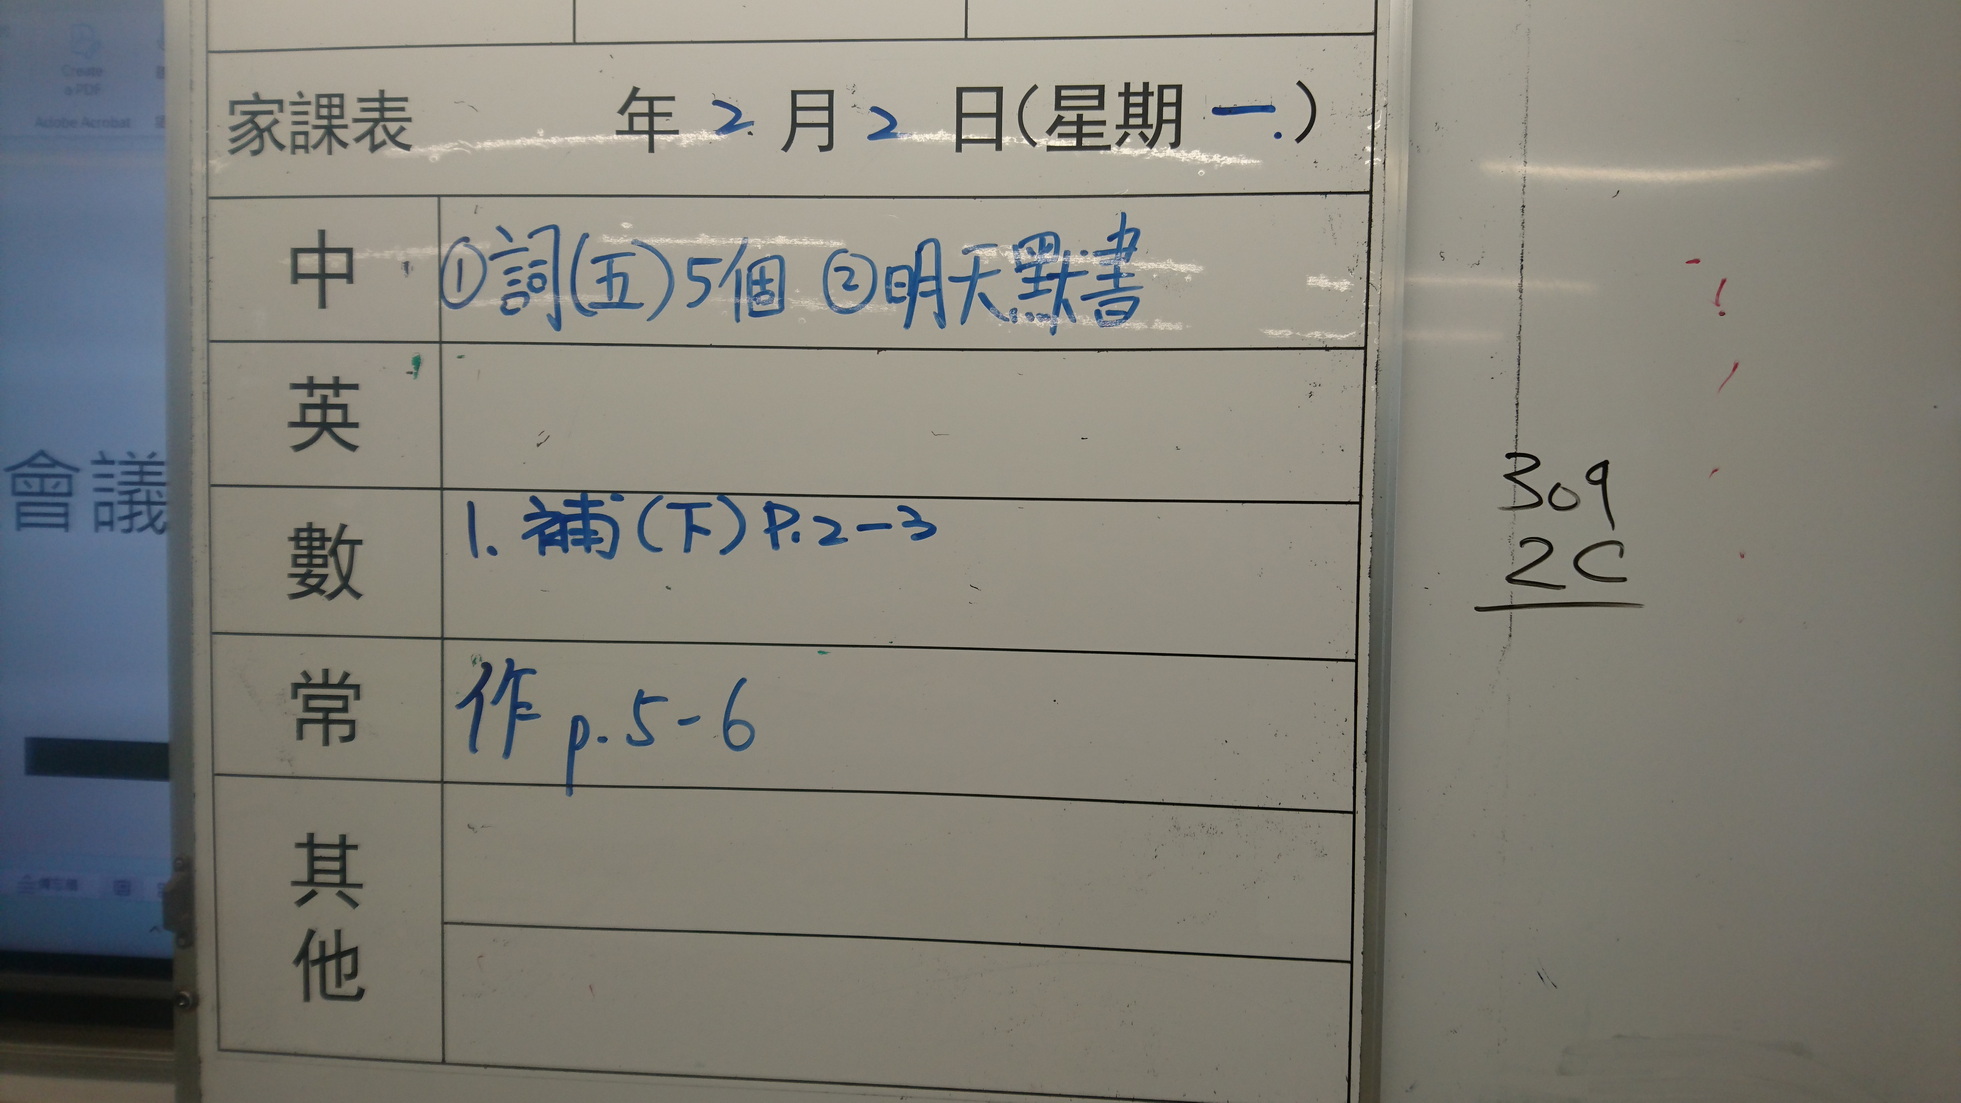 Create
a PDF
Adobe Acrobat
會議
家課表 年 2 月 2 日(星期 一.)
中 ①詞(五)5個 ②明天默書
英
數 1. 補(下) P.2-3
常 作 p.5-6
其他
309
2C